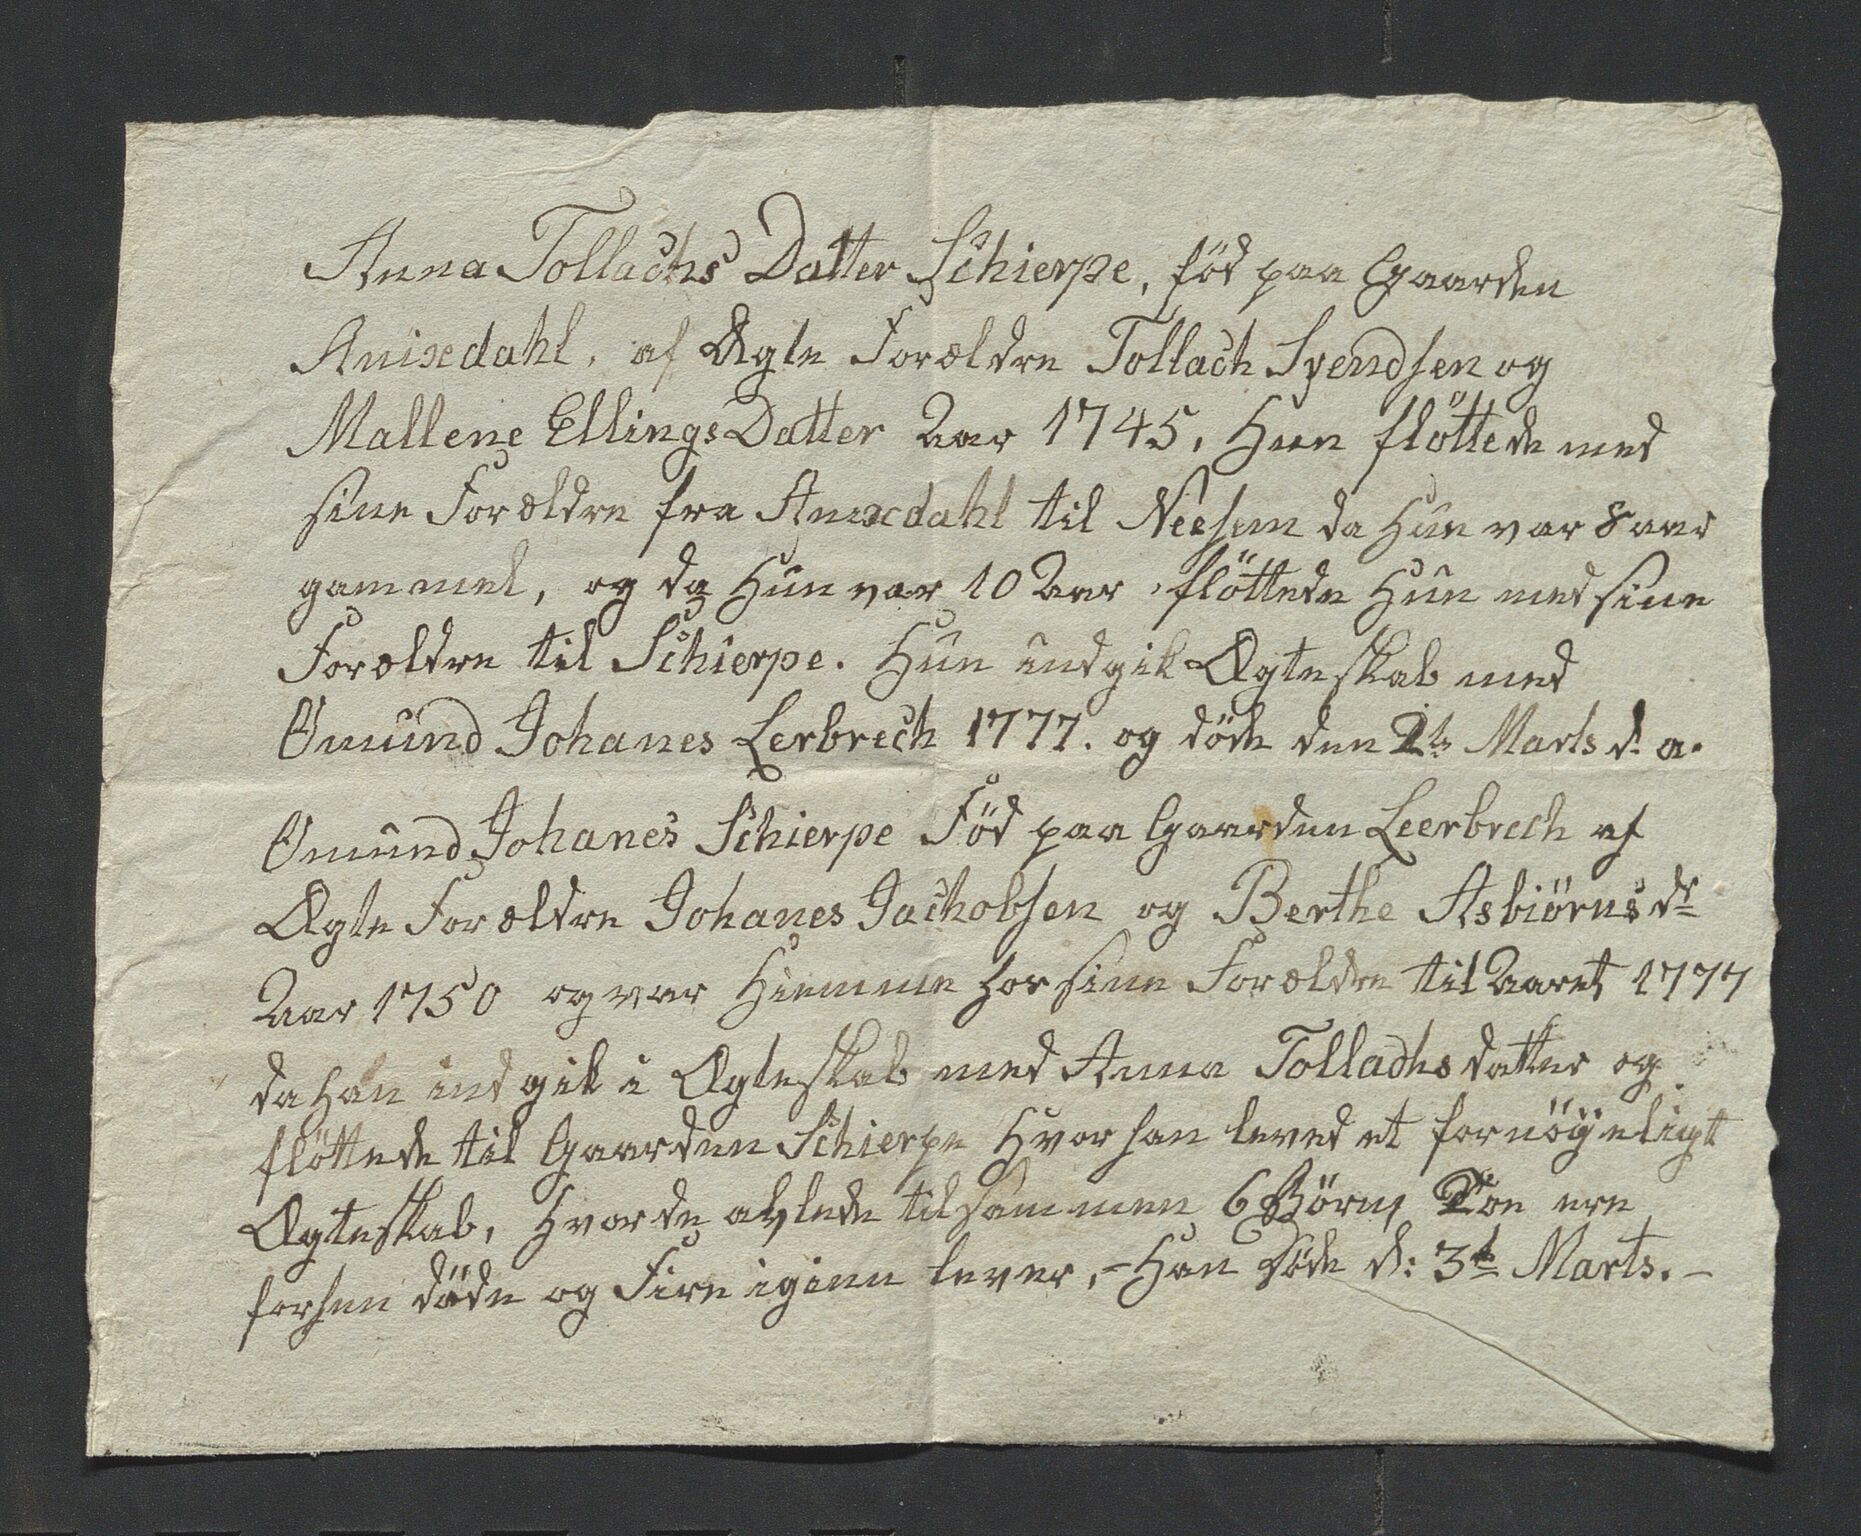 Anna Tollachs Datter Schierpe, föd paa Gaarden
Anixdahl, af Ægte Forældre Tollach Svendsen og
Mallene Ellings Datter Aar 1745, Hun flöttede med
sine Forældre fra Anixdahl til Neesem da Hun var 8 aar
gammel, og da Hun var 10 Aar, flöttede Hun med sine
Forældre til Schierpe. Hun indgik Ægteskab med
Omund Johanes Lerbrech 1777. og döde den 2te Marts d. a.
Omund Johanes Schierpe Föd paa Gaarden Leerbrech af
Ægte Forældre Johanes Jachobsen og Berthe Asbiörnsdr
Aar 1750 og var Hiemme hos sine Forældre til Aaret 1777
da Han indgik i Ægteskab med Anna Tollachsdatter og
flöttede til Gaarden Schierpe Hvor han leved et fornöyeligt
Ægteskab, Hvor de avlede tilsammen 6 Börn, Toe ere
forhen döde og Fire igien lever, - Han döde d: 3te Marts. -